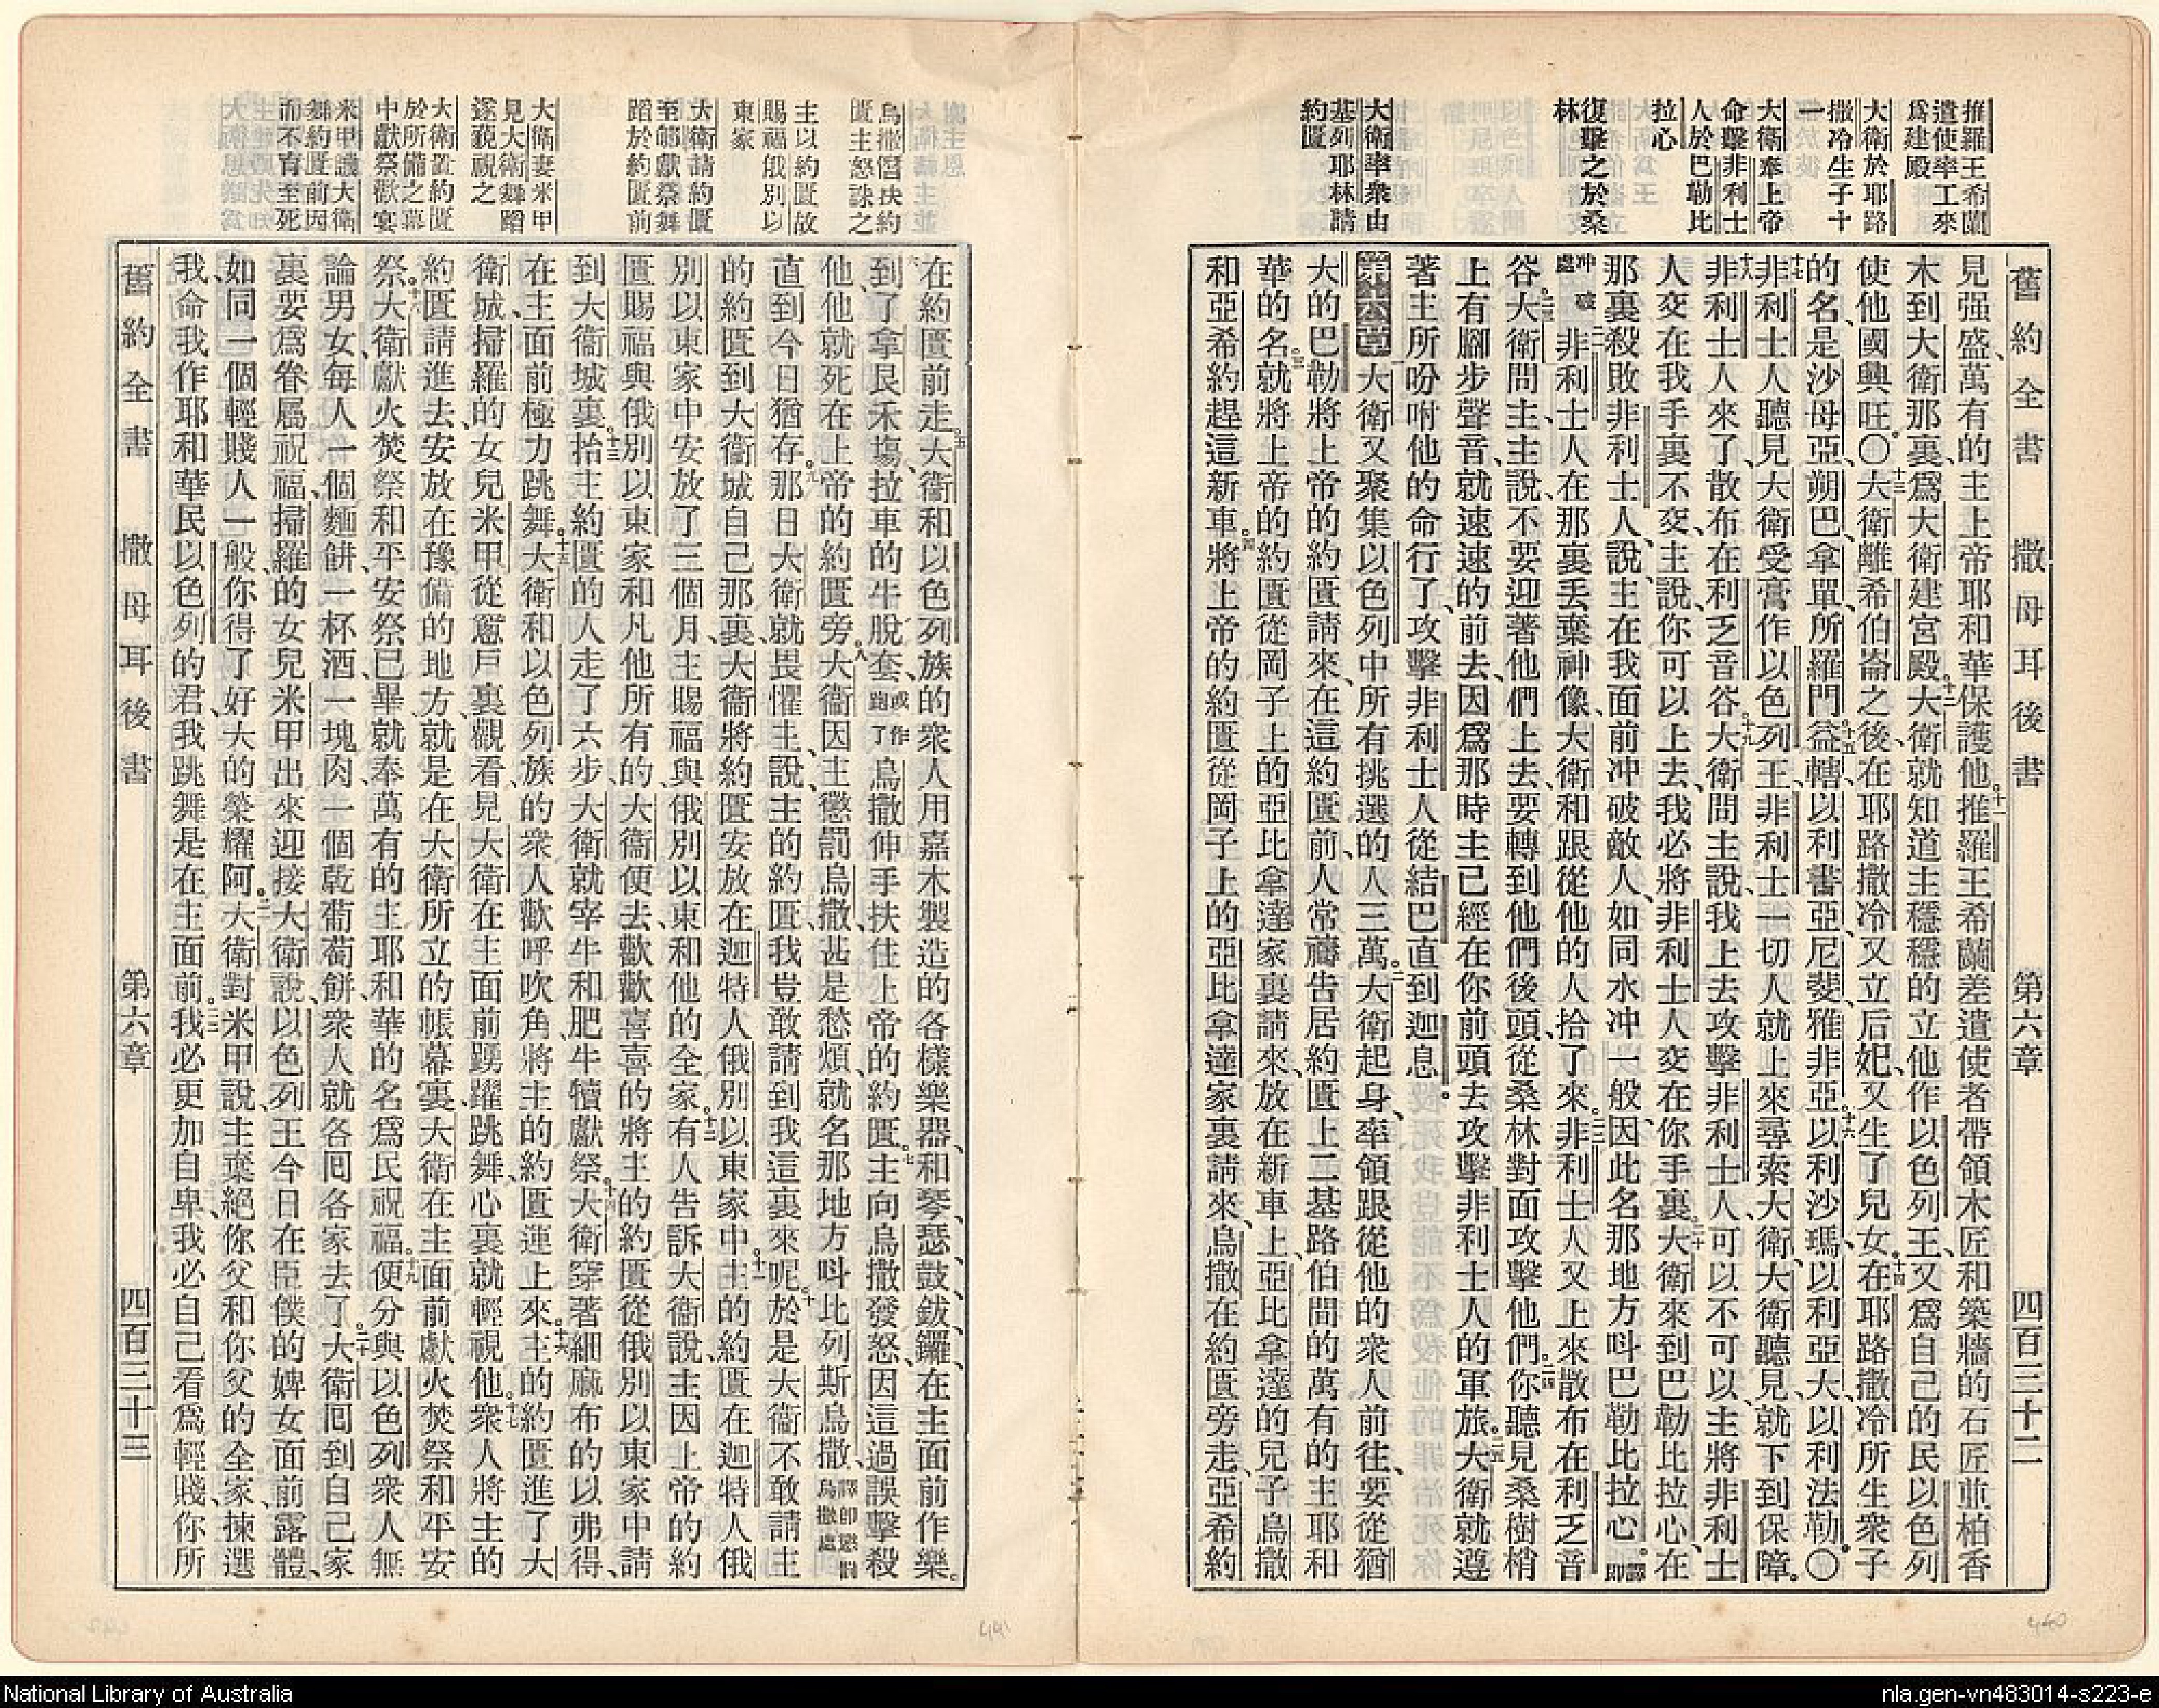 推羅王希蘭
遣使率工來
爲建殿
大衛於耶路
撒冷生子十
一
大衛奉上帝
命擊非利士
人於巴勒比
拉心
復擊之於桑
林
大衛率衆由
基列耶林請
約匱
舊約全書 撒母耳後書 第六章 四百三十二
見强盛、萬有的主上帝耶和華保護他。十一推羅王希蘭差遣使者帶領木匠和築牆的石匠並柏香
木到大衛那裏、爲大衛建宮殿。十二大衛就知道主穩穩的立他作以色列王、又爲自己的民以色列
使他國興旺。〇十三大衛離希伯崙之後、在耶路撒冷又立后妃、又生了兒女。十四在耶路撒冷所生衆子
的名、是沙母亞、朔巴、拿單、所羅門、十五益轄、以利書亞、尼斐、雅非亞、十六以利沙瑪、以利亞大、以利法勒。〇
十七非利士人聽見大衛受膏作以色列王、非利士一切人就上來尋索大衛、大衛聽見、就下到保障。
十八非利士人來了、散布在利乏音谷。十九大衛問主說、我上去攻擊非利士人、可以不可以、主將非利士
人交在我手裏不交、主說、你可以上去、我必將非利士人交在你手裏。二十大衛來到巴勒比拉心、在
那裏殺敗非利士人、說、主在我面前冲破敵人、如同水冲一般、因此名那地方呌巴勒比拉心。譯即
冲破處二一非利士人在那裏丢棄神像、大衛和跟從他的人拾了來。二二非利士人又上來散布在利乏音
谷。二三大衛問主、主說、不要迎著他們上去、要轉到他們後頭、從桑林對面攻擊他們。二四你聽見桑樹梢
上有腳步聲音、就速速的前去、因爲那時主已經在你前頭去攻擊非利士人的軍旅。二五大衛就遵
著主所吩咐他的命行了、攻擊非利士人、從結巴直到迦息。
第六章一大衛又聚集以色列中所有挑選的人三萬。二大衛起身、率領跟從他的衆人前往、要從猶
大的巴勒將上帝的約匱請來、在這約匱前、人常禱告居約匱上二基路伯間的萬有的主耶和
華的名。三就將上帝的約匱從岡子上的亞比拿達家裏請來、放在新車上、亞比拿達的兒子烏撒
和亞希約趕這新車。四將上帝的約匱從岡子上的亞比拿達家裏請來、烏撒在約匱旁走、亞希約
烏撒㥬扶約
匱主怒誅之
主以約匱故
賜福俄別以
東家
大衛請約匱
至邸獻祭舞
蹈於約匱前
大衛妻米甲
見大衛舞蹈
遂藐視之
大衛置約匱
於所備之幕
中獻祭歡宴
米甲譏大衛
舞約匱前因
而不育至死
在約匱前走。五大衛和以色列族的衆人用嘉木製造的各樣樂器、和琴、瑟、鼓、鈸、鑼、在主面前作樂。
六到了拿艮禾塲、拉車的牛脫套、或作跑了烏撒伸手扶住上帝的約匱。七主向烏撒發怒、因這過誤擊殺
他、他就死在上帝的約匱旁。八大衛因主懲罰烏撒、甚是愁煩、就名那地方呌比列斯烏撒、譯即懲罰烏撒處
直到今日猶存。九那日大衛就畏懼主、說、主的約匱、我豈敢請到我這裏來呢。十於是大衛不敢請主
的約匱到大衛城自己那裏、大衛將約匱安放在迦特人俄別以東家中。十一主的約匱在迦特人俄
別以東家中安放了三個月、主賜福與俄別以東、和他的全家。十二有人告訴大衛說、主因上帝的約
匱賜福與俄別以東家和凡他所有的、大衛便去歡歡喜喜的將主的約匱從俄別以東家中請
到大衛城裏。十三抬主約匱的人走了六步、大衛就宰牛和肥牛犢獻祭。十四大衛穿著細麻布的以弗得、
在主面前極力跳舞。十五大衛和以色列族的衆人歡呼吹角、將主的約匱運上來。十六主的約匱進了大
衛城、掃羅的女兒米甲從窻戶裏觀看、見大衛在主面前踴躍跳舞、心裏就輕視他。十七衆人將主的
約匱請進去、安放在豫備的地方、就是在大衛所立的帳幕裏、大衛在主面前獻火焚祭和平安
祭。十八大衛獻火焚祭和平安祭已畢、就奉萬有的主耶和華的名爲民祝福。十九便分與以色列衆人無
論男女、每人一個麵餅、一杯酒、一塊肉、一個乾葡萄餅、衆人就各囘各家去了。二十大衛囘到自己家
裏、要爲眷屬祝福、掃羅的女兒米甲出來迎接大衛說、以色列王今日在臣僕的婢女面前露體、
如同一個輕賤人一般、你得了好大的榮耀阿。二一大衛對米甲說、主棄絕你父和你父的全家、揀選
我、命我作耶和華民以色列的君、我跳舞是在主面前。二二我必更加自卑、我必自己看爲輕賤、你所
舊約全書 撒母耳後書 第六章 四百三十三
441
440
National Library of Australia
nla.gen-vn483014-s223-e